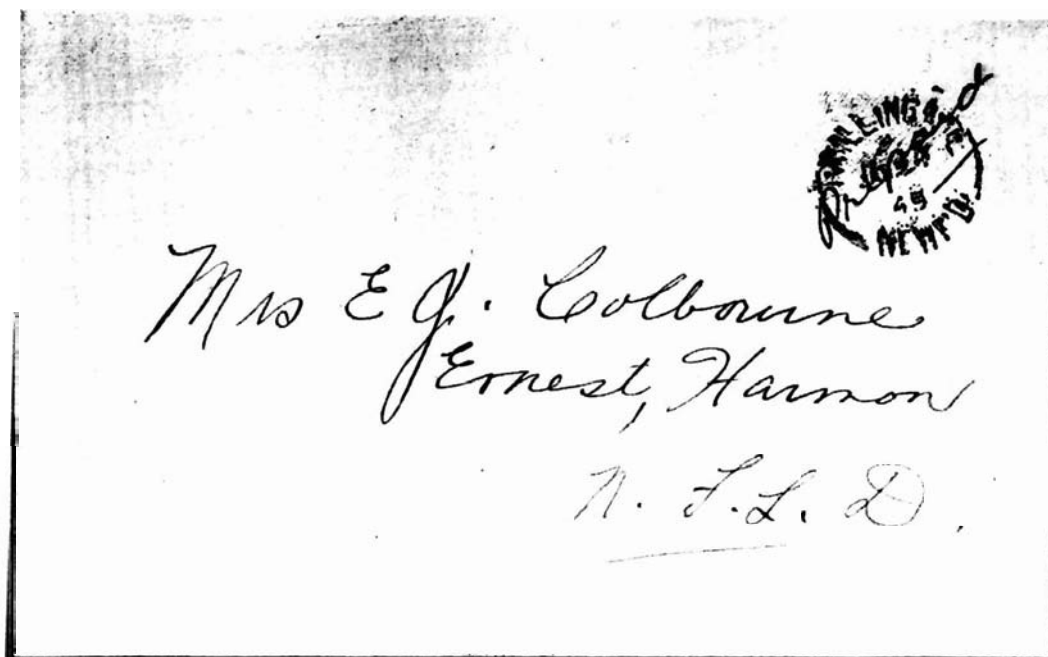 Prepaid
49
NEWF'D
Mrs E J. Colbourne
Ernest, Harmon
N. F. L. D.